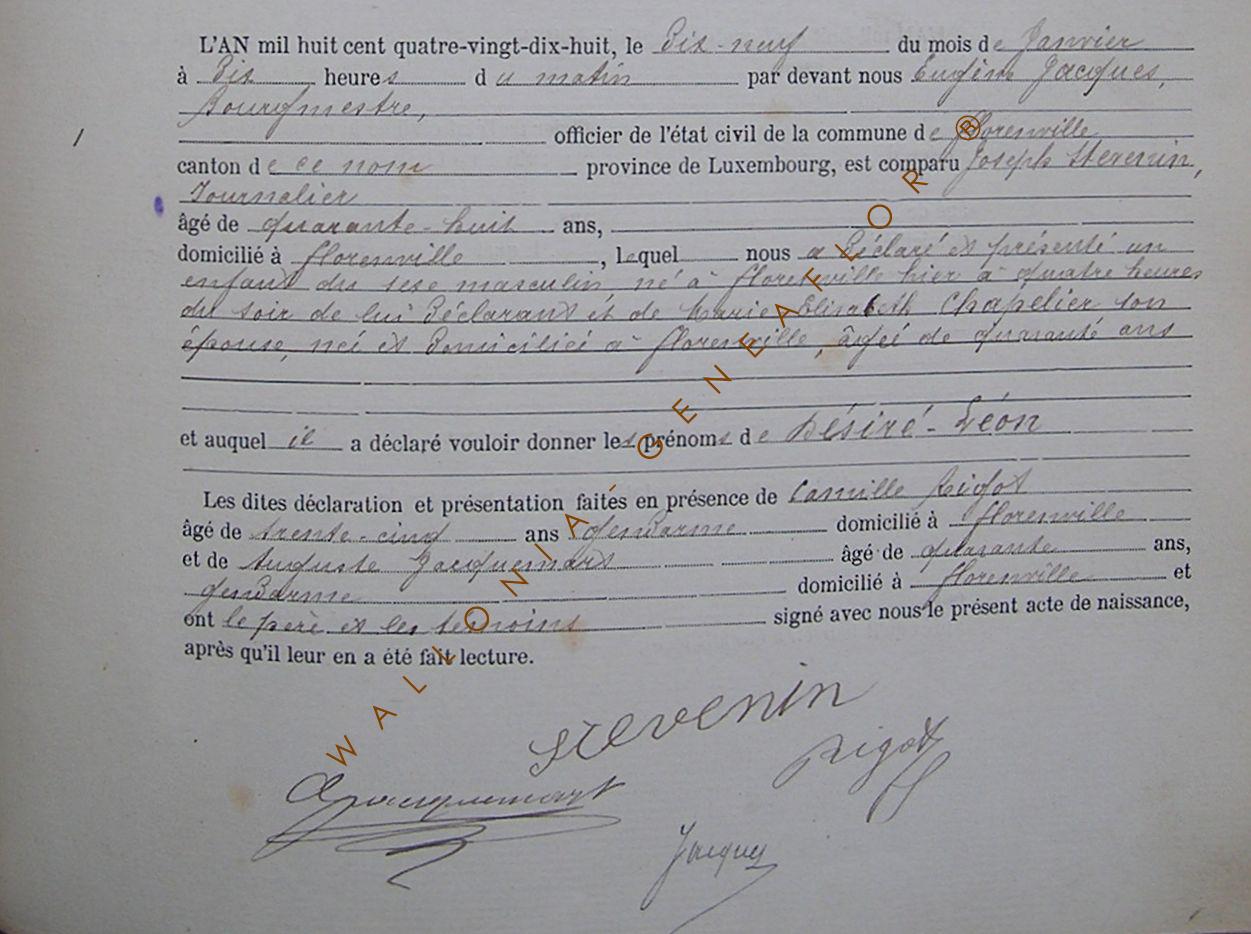 L'AN mil huit cent quatre-vingt-dix-huit, le Dix-neuf du mois de Janvier
à Dix heures du matin par devant nous Eugène Jacques,
Bourgmestre,
officier de l'état civil de la commune de florenville
canton de ce nom province de Luxembourg, est comparu Joseph Stevenin,
Journalier
âgé de quarante-huit ans,
domicilié à florenville, Lequel nous a Déclaré et présenté un
enfant du sexe masculin né à florenville hier à quatre heures
du soir de lui Déclarant et de Marie Elisabeth Chapelier son
épouse, née et Domiciliée à florenville, âgée de quarante ans
et auquel il a déclaré vouloir donner les prénoms de Désiré-Léon
Les dites déclaration et présentation faites en présence de Camille Rigot
âgé de trente-cinq ans gendarme domicilié à florenville
et de Auguste Jacquemart âgé de quarante ans,
gendarme domicilié à florenville et
ont le père et les témoins signé avec nous le présent acte de naissance,
après qu'il leur en a été fait lecture.
Stevenin
Rigot
A Jacquemart
Jacques
WALLONIA-GENEAFLOR®